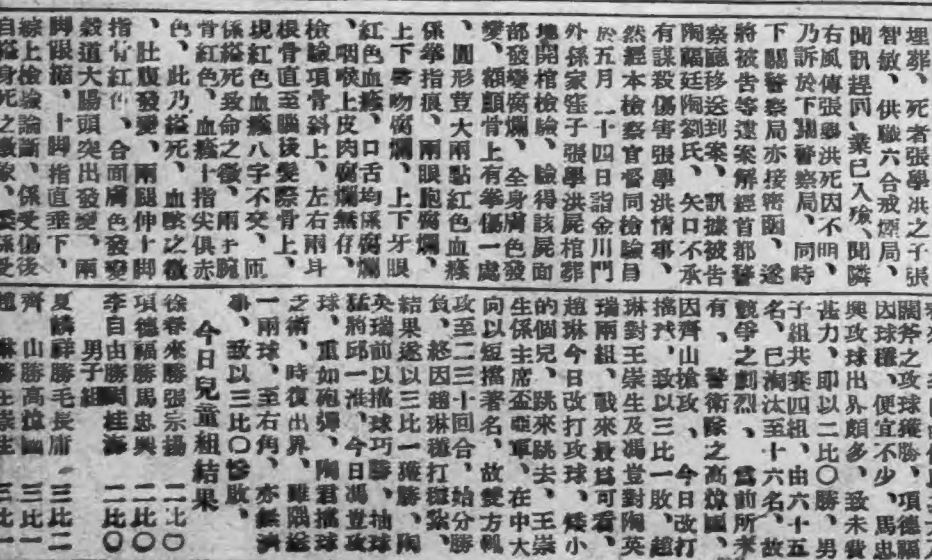 埋葬、死者張學洪之子張
智敏、供職六合戒煙局、
聞訊趕回、業已入殮、聞隣
右風傳張學洪死因不明、
乃訴於下關警察局、同時
下關警察局亦接密函、遂
將被告等逮案解經首都警
察廳移送到案、訊據被告
陶福廷陶劉氏、矢口不承
有謀殺傷害張學洪情事、
然經本檢察官督同檢驗員
於五月二十四日詣金川門
外係家窪子張學洪屍棺葬
地開棺檢驗、驗得該屍面
部發變腐爛、全身膚色發
變、額顱骨上有拳傷一處
、圓形豆大兩點紅色血癊
係拳指痕、兩眼胞腐爛、
上下唇吻腐爛、上下牙眼
紅色血癊、口舌均係腐爛
、咽喉上皮肉腐爛無存、
檢驗項骨斜上、左右兩耳
根骨直至腦後髮際骨上、
現紅色血癊八字不交、而
係縊死致命之徵、兩手腕
骨紅色、血癊十指尖俱赤
色、此乃縊死、血墜之徵
、肚腹發變、兩腿伸十脚
指骨紅色、合面膚色發變
穀道大腸頭突出發變、兩
脚跟縮、十脚指直垂下、
綜上檢驗論斷、係受傷後
自縊身死之
闊斧之攻球獲勝、項德福
因球穩、便宜不少、馬忠
興攻球出界頗多、致未費
甚力、即以二比〇勝、男
子組共賽四組、由六十五
名、已淘汰至十六名、故
競爭之劇烈、為前所未
有、警衛隊之高
因齊山搶攻、今日改打
搐球、致以三比一敗、趙
琳對王崇生及馮登對陶英
瑞兩組、戰來最為可看、
趙琳今日改打攻球、矮小
的個兒、跳來跳去、王崇
生係主席盃亞軍、在中大
向以短搐著名、故雙方戰
攻至二三十回合、始分勝
負、終因趙琳穩打穩紮、
結果遂以三比一獲勝、陶
英瑞前以搐球巧勝、抽球
猛將邱一淮、今日馮登攻
球、重如砲彈、陶君搐球
之術、時復出界、雖隅起
一兩球、至右角、亦無濟
事、致以三比〇慘敗、
今日兒童組結果
徐春來勝張宗揚 二比〇
項德福勝馬忠興 二比〇
李自由勝關桂海 二比〇
男子組
夏麟祥勝毛長庸 三比二
齊山勝高 三比一
趙琳勝王崇生 三比一